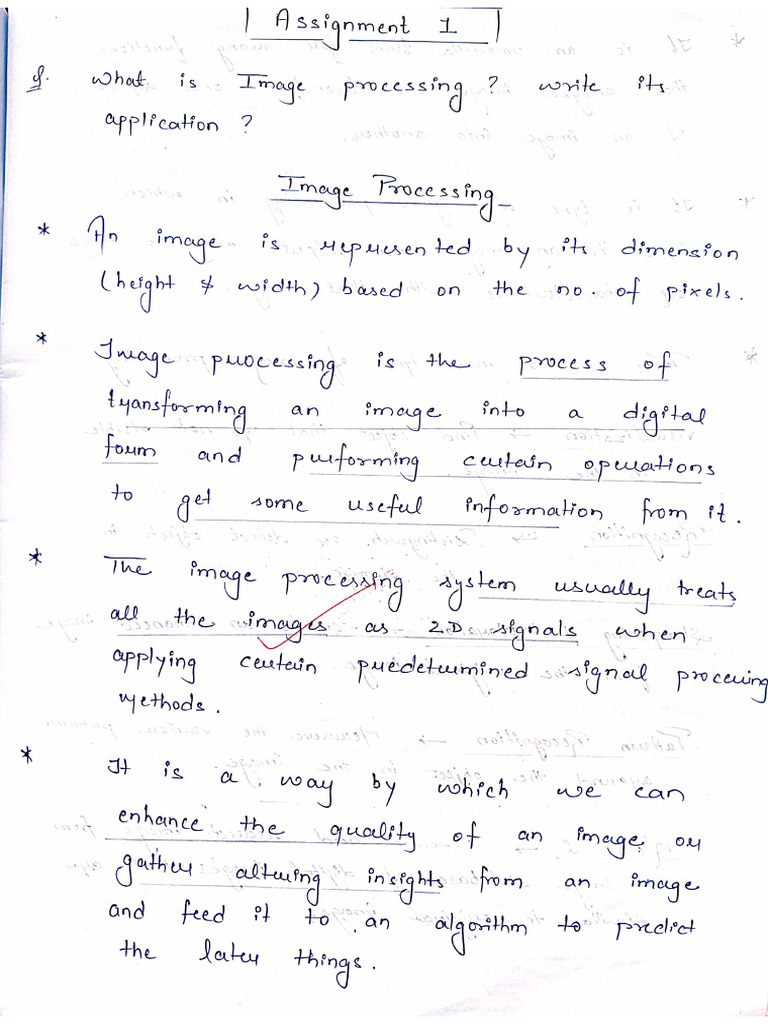 Assignment 1
Q. What is Image processing ? write its
application ?
Image Processing
* An image is represented by its dimension
(height & width) based on the no. of pixels.
* Image processing is the process of
transforming an image into a digital
form and performing certain operations
to get some useful information from it.
* The image processing system usually treats
all the images as 2D signals when
applying certain predetermined signal processing
methods.
* It is a way by which we can
enhance the quality of an image or
gather altering insights from an image
and feed it to an algorithm to predict
the later things.